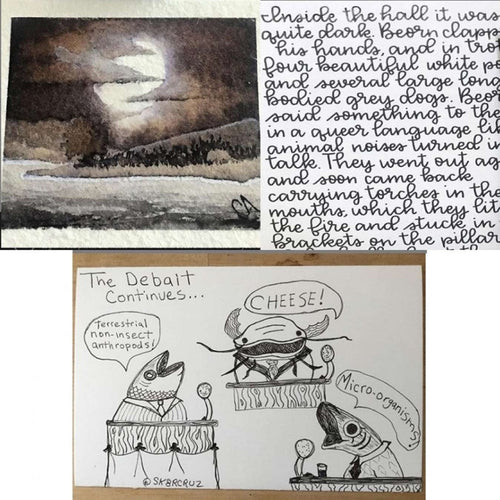 Inside the hall it was
quite dark. Beorn clapp
his hands, and in trot
four beautiful white po
and several large long
bodied grey dogs. Beor
said something to the
in a queer language li
animal noises turned in
talk. They went out ag
and soon came back
carrying torches in the
mouths, which they lit
the fire and stuck in
brackets on the pillar
The Debait
Continues...
CHEESE!
Terrestrial
non-insect
anthropods!
Micro-organisms!
@SKBRCRUZ